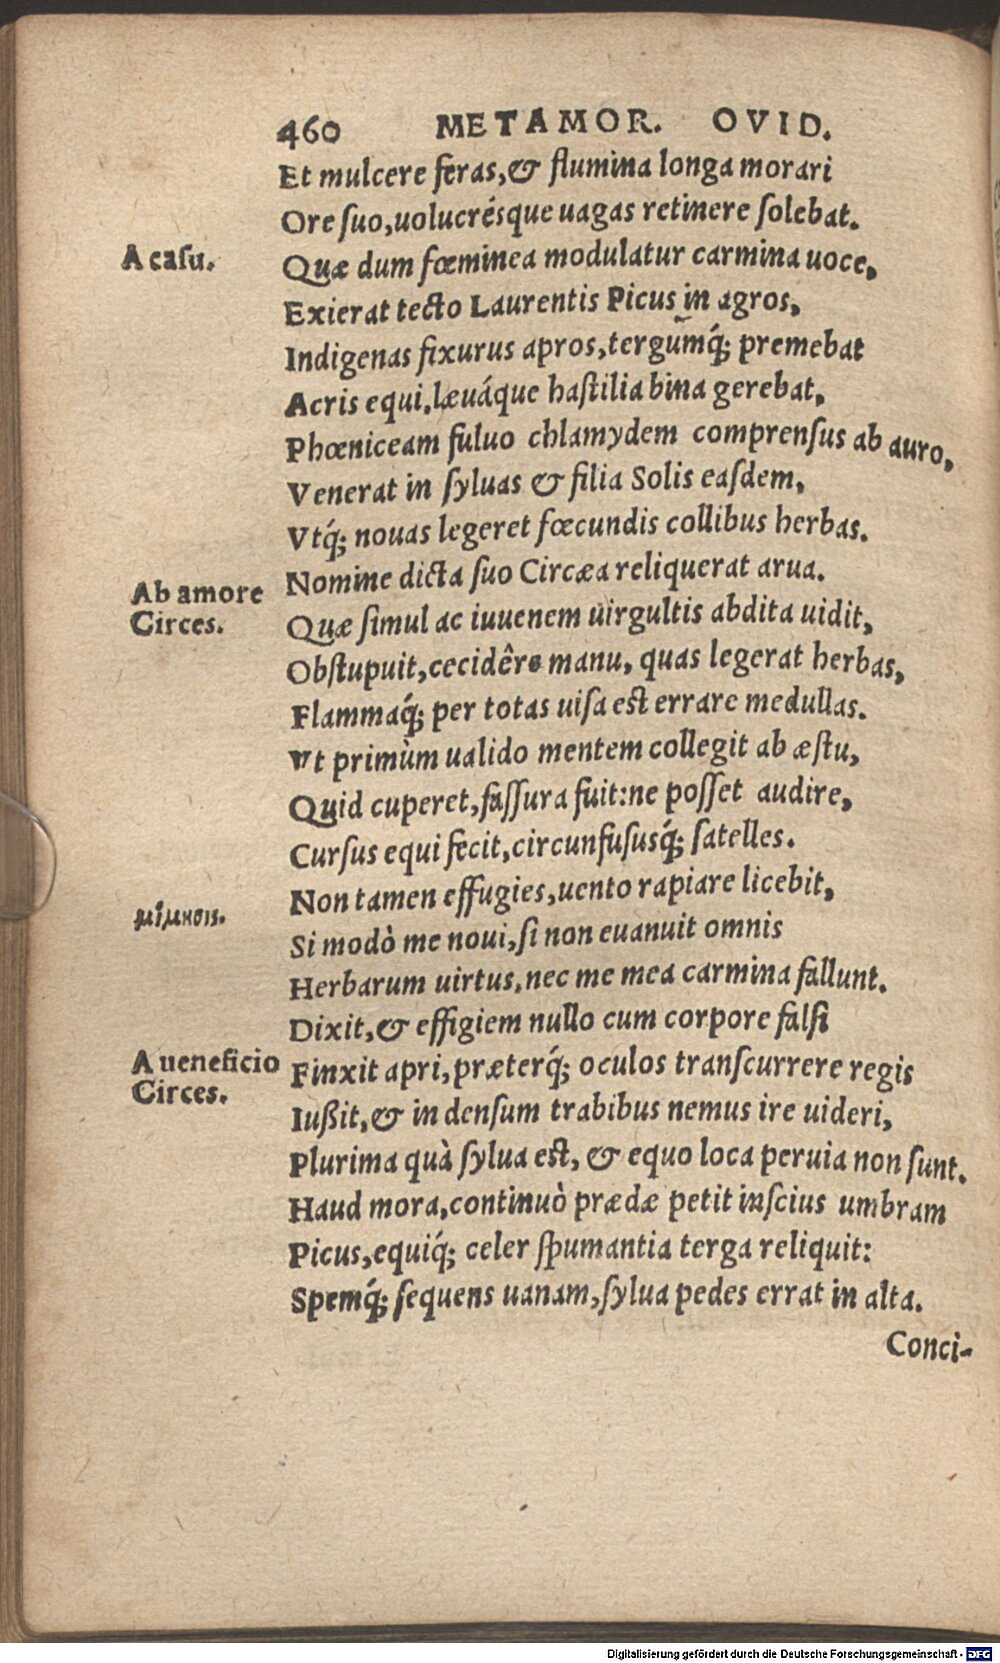 460 METAMOR. OVID.
Et mulcere feras, & flumina longa morari
Ore ſuo, uolucrésque uagas retinere ſolebat.
A caſu.
Quæ dum fœminea modulatur carmina uoce,
Exierat tecto Laurentis Picus in agros,
Indigenas fixurus apros, tergúmq́; premebat
Acris equi, læuáque haſtilia bina gerebat,
Phœniceam fuluo chlamydem comprenſus ab auro,
Venerat in ſyluas & filia Solis eaſdem,
Vtq́; nouas legeret fœcundis collibus herbas.
Nomine dicta ſuo Circæa reliquerat arua.
Ab amore
Circes.
Quæ ſimul ac iuuenem uirgultis abdita uidit,
Obſtupuit, cecidêre manu, quas legerat herbas,
Flammaq́; per totas uiſa eſt errare medullas.
Vt primùm ualido mentem collegit ab æſtu,
Quid cuperet, faſſura fuit: ne poſſet audire,
Curſus equi fecit, circunfuſusq́; ſatelles.
Non tamen effugies, uento rapiare licebit,
μίμησις.
Si modò me noui, ſi non euanuit omnis
Herbarum uirtus, nec me mea carmina fallunt.
Dixit, & effigiem nullo cum corpore falſi
A ueneficio
Circes.
Finxit apri, præterq́; oculos tranſcurrere regis
Iußit, & in denſum trabibus nemus ire uideri,
Plurima quà ſylua eſt, & equo loca peruia non ſunt.
Haud mora, continuò prædæ petit inſcius umbram
Picus, equiq́; celer ſpumantia terga reliquit:
Spemq́; ſequens uanam, ſylua pedes errat in alta.
Conci-
Digitalisierung gefördert durch die Deutsche Forschungsgemeinschaft - DFG